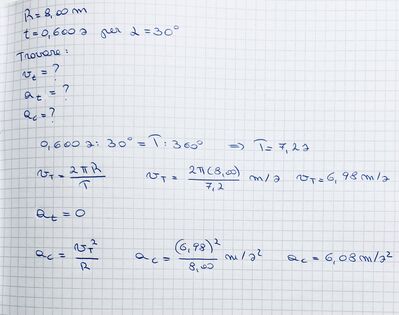 R = 8,00 m
t = 0,600 s per α = 30°
Trovare:
v_t = ?
a_t = ?
a_c = ?
0,600 s : 30° = T : 360° ⇒ T = 7,2 s
v_T = 2πR/T v_T = 2π(8,00)/7,2 m/s v_T = 6,98 m/s
a_t = 0
a_c = v_T²/R a_c = (6,98)²/8,00 m/s² a_c = 6,08 m/s²